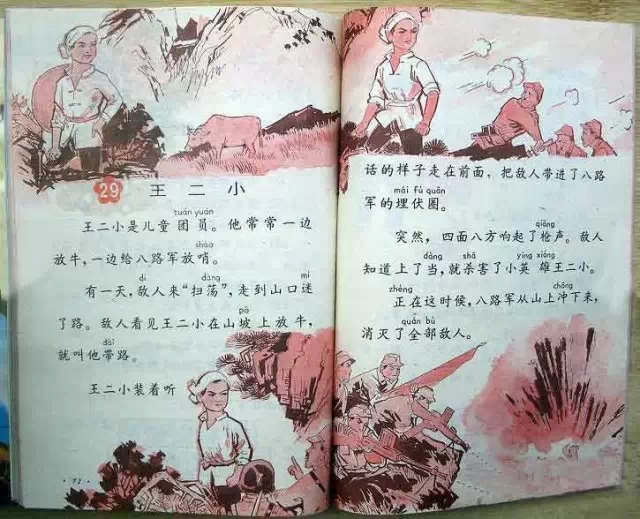 29 王二小
tuán yuán
王二小是儿童团员。他常常一边
shào
放牛，一边给八路军放哨。
dí dàng mí
有一天，敌人来“扫荡”，走到山口迷
pō
了路。敌人看见王二小在山坡上放牛，
dài
就叫他带路。
王二小装着听
73
话的样子走在前面，把敌人带进了八路
mái fú quān
军的埋伏圈。
qiāng
突然，四面八方响起了枪声。敌人
dàng shā yīng xióng
知道上了当，就杀害了小英雄王二小。
zhèng chōng
正在这时候，八路军从山上冲下来，
quán bù
消灭了全部敌人。